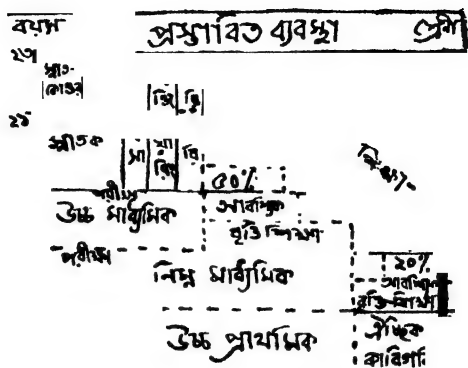 বয়স প্রস্তাবিত ব্যবস্থা শ্রেণী
২৩
স্নাত-
কোত্তর
২১
স্নাতক
৫০%
পরীক্ষা
উচ্চ মাধ্যমিক আবশ্যিক
বৃত্তি শিক্ষা
পরীক্ষা
নিম্ন মাধ্যমিক ২০%
আবশ্যিক
বৃত্তি শিক্ষা
উচ্চ প্রাথমিক ঐচ্ছিক
কারিগরি